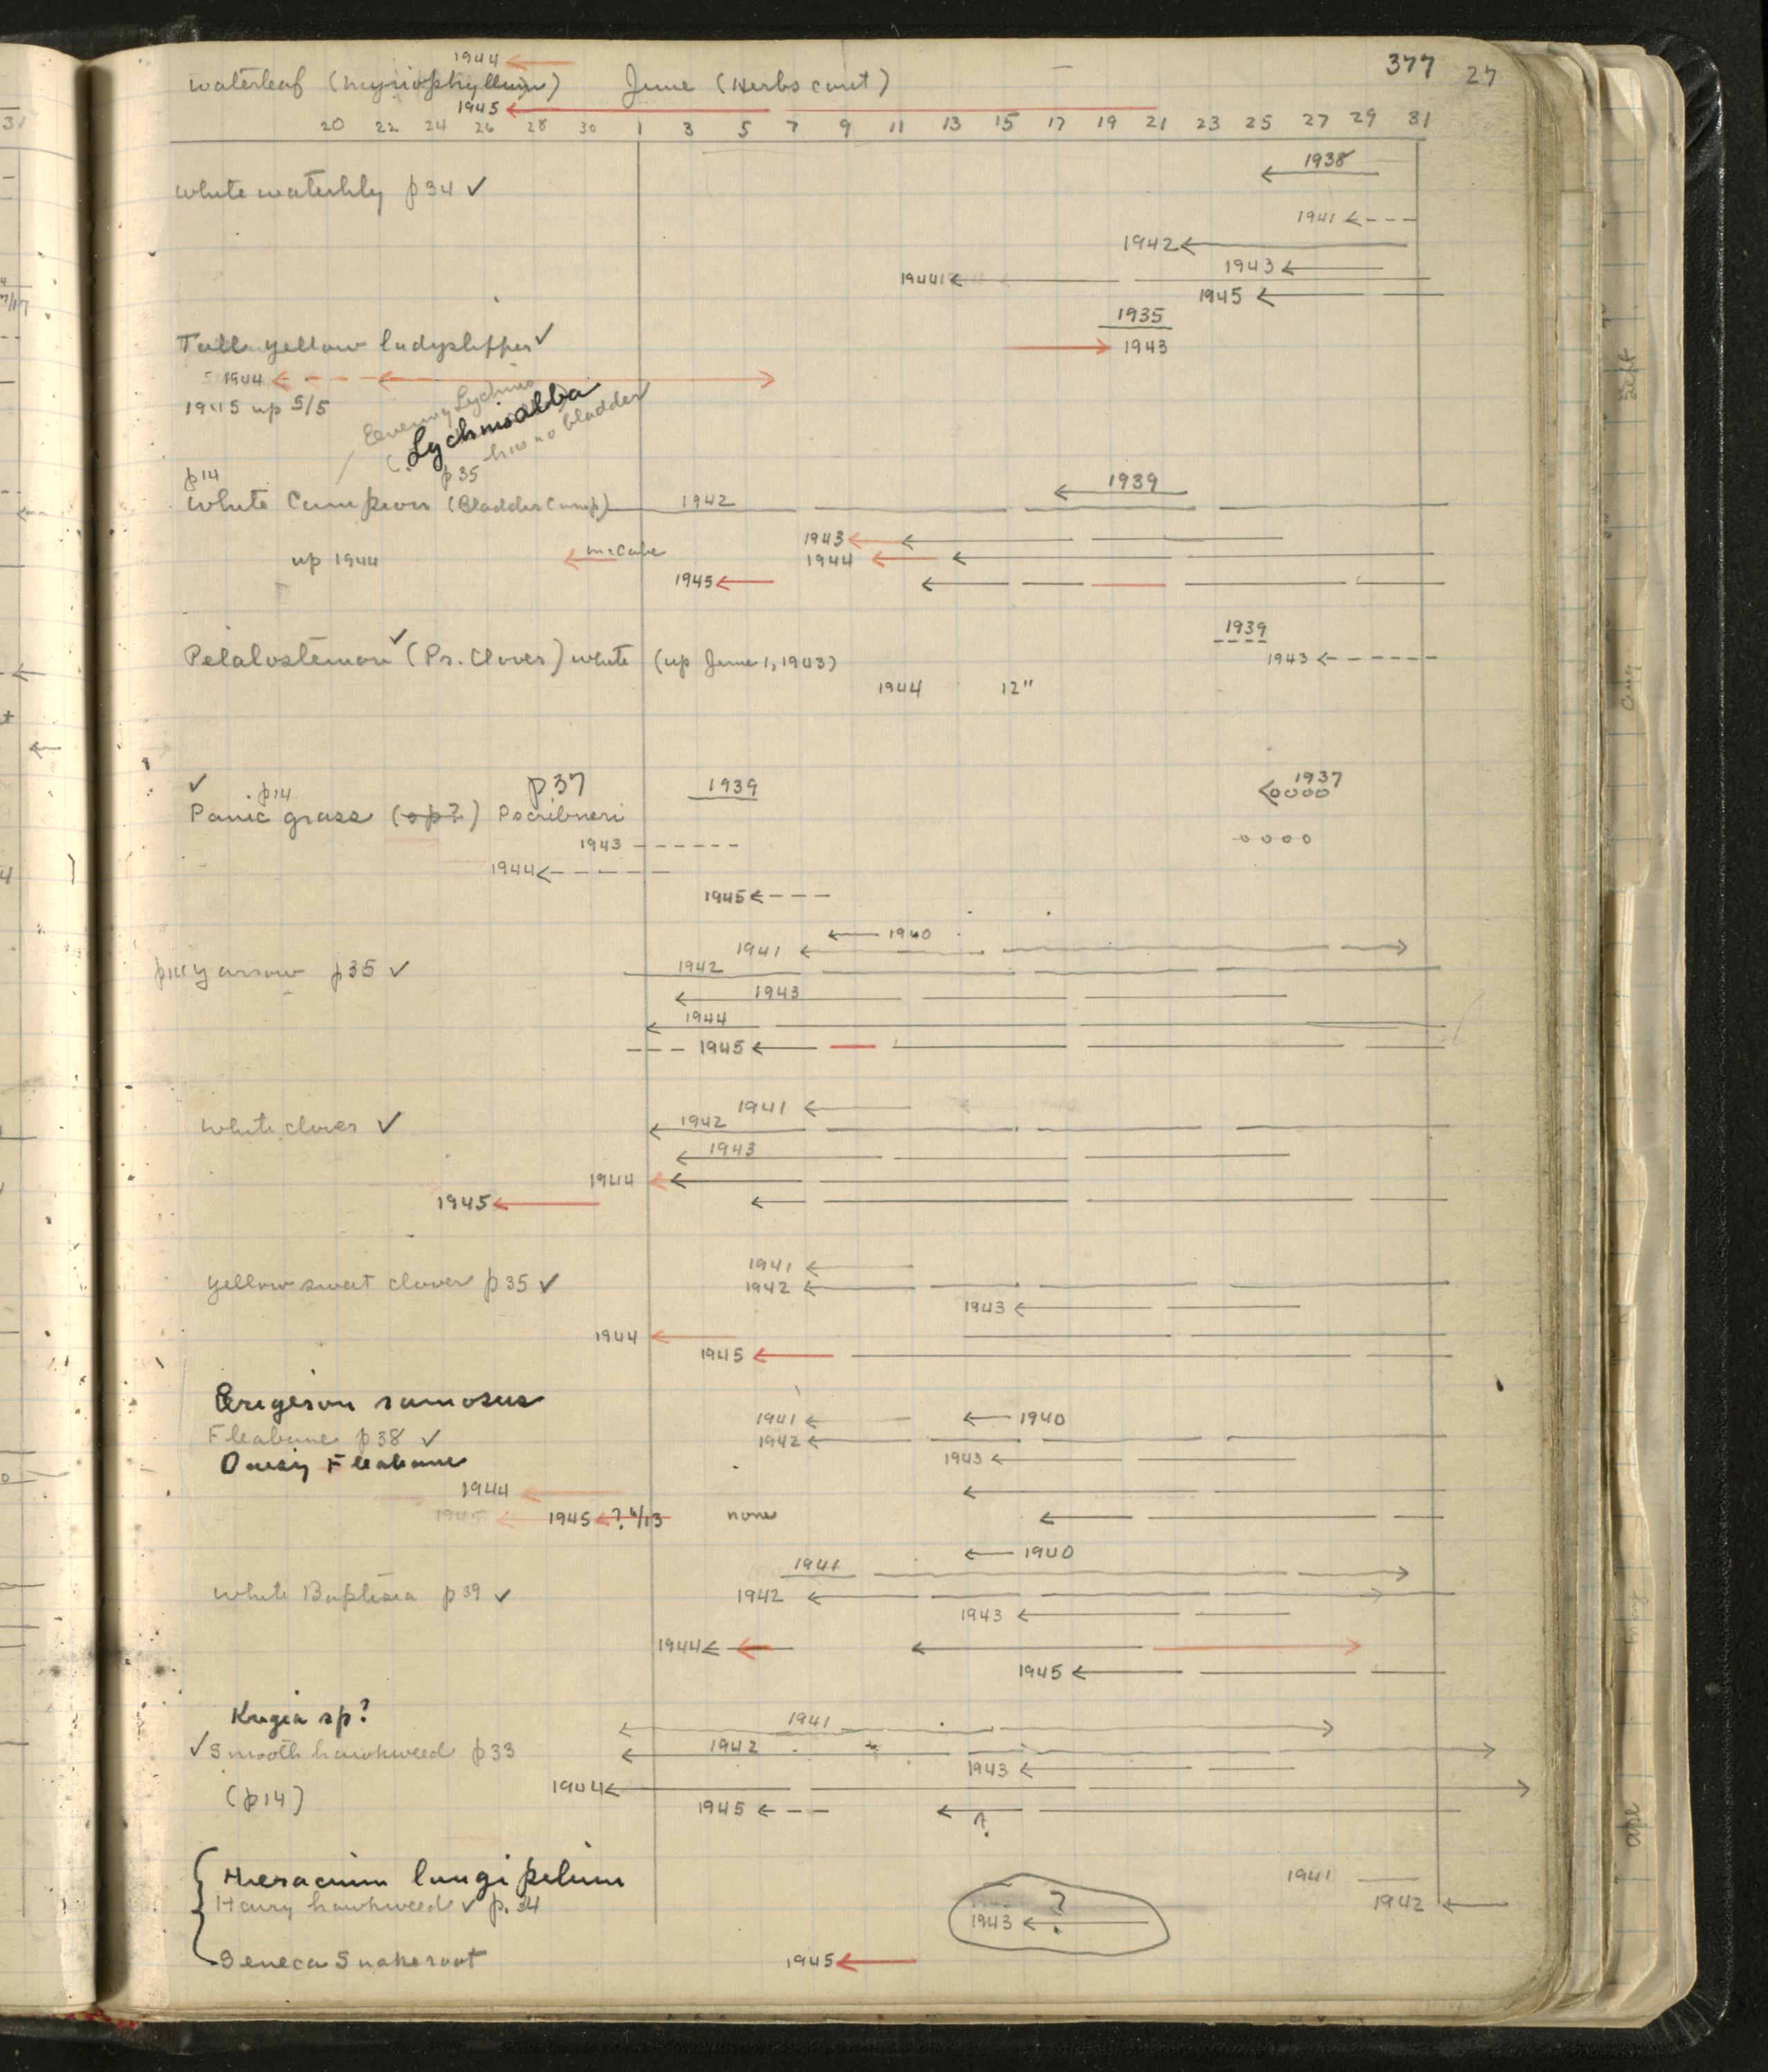 1944
377 27
Waterleaf (          ) June (Herbs cont)
1945
20 22 24 26 28 30 1 3 5 7 9 11 13 15 17 19 21 23 25 27 29 31
1938
White waterlily p34 ✓
1941
1942
1943
1944
1945
1935
Tall yellow ladyslipper ✓
1943
1944
1945 up 5/5
Evening Lychnis
Lychnis alba
p35 has no bladder
p14
1939
White Campion (Bladder Camp) 1942
1943
McCabe
up 1944
1944
1945
1939
Petalostemon ✓ (Pr. Clover) white (up June 1, 1943)
1943
1944 12"
✓ p14 p37 1939 1937
Panic grass (sp?) P scribneri
oooo
1943
oooo
1944
1945
1940
1941
p14 Yarrow p35 ✓
1942
1943
1944
1945
1941
White clover ✓
1942
1943
1944
1945
1941
Yellow sweet clover p35 ✓
1942
1943
1944
1945
Erigeron ramosus
1941 1940
Fleabane p38 ✓
1942
Daisy Fleabane
1943
1944
1945 1945 ? 6/13 none
1940
1941
White Baptisia p39 ✓
1942
1943
1944
1945
Krigia sp?
1941
✓ Smooth hawkweed p33
1942
1943
(p14)
1944
1945 ?
Hieracium longipilum
1941
Hairy hawkweed ✓ p. 34
1942
?
1943
Seneca Snakeroot
1945
Sept
Aug
apl